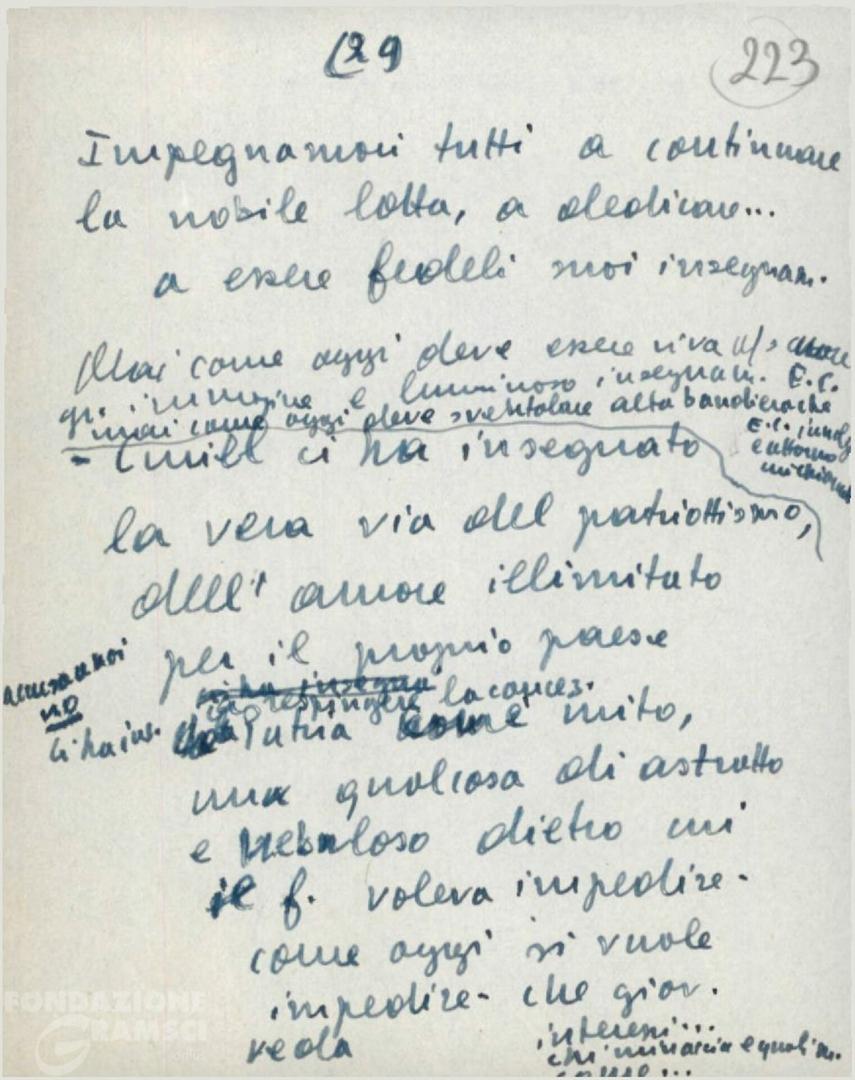 (29
223
Impegnamoci tutti a continuare
la nobile lotta, a dedicare...
a essere fedeli suoi insegnam.
Mai come oggi deve essere viva
immagine e luminoso insegnam. E.C.
mai come oggi deve sventolare alta bandiera che
E.C.
- Emilio ci ha insegnato
la vera via del patriottismo,
dell' amore illimitato
per il proprio paese
no
ci ha insegna
a respingere la conces.
Ci ha ins.
Patria come mito,
una qualcosa di astratto
e nebuloso dietro cui
il f. voleva impedire -
come oggi si vuole
impedire - che giov.
veda
interessi...
chi minaccia e quali in.
come...
FONDAZIONE
GRAMSCI